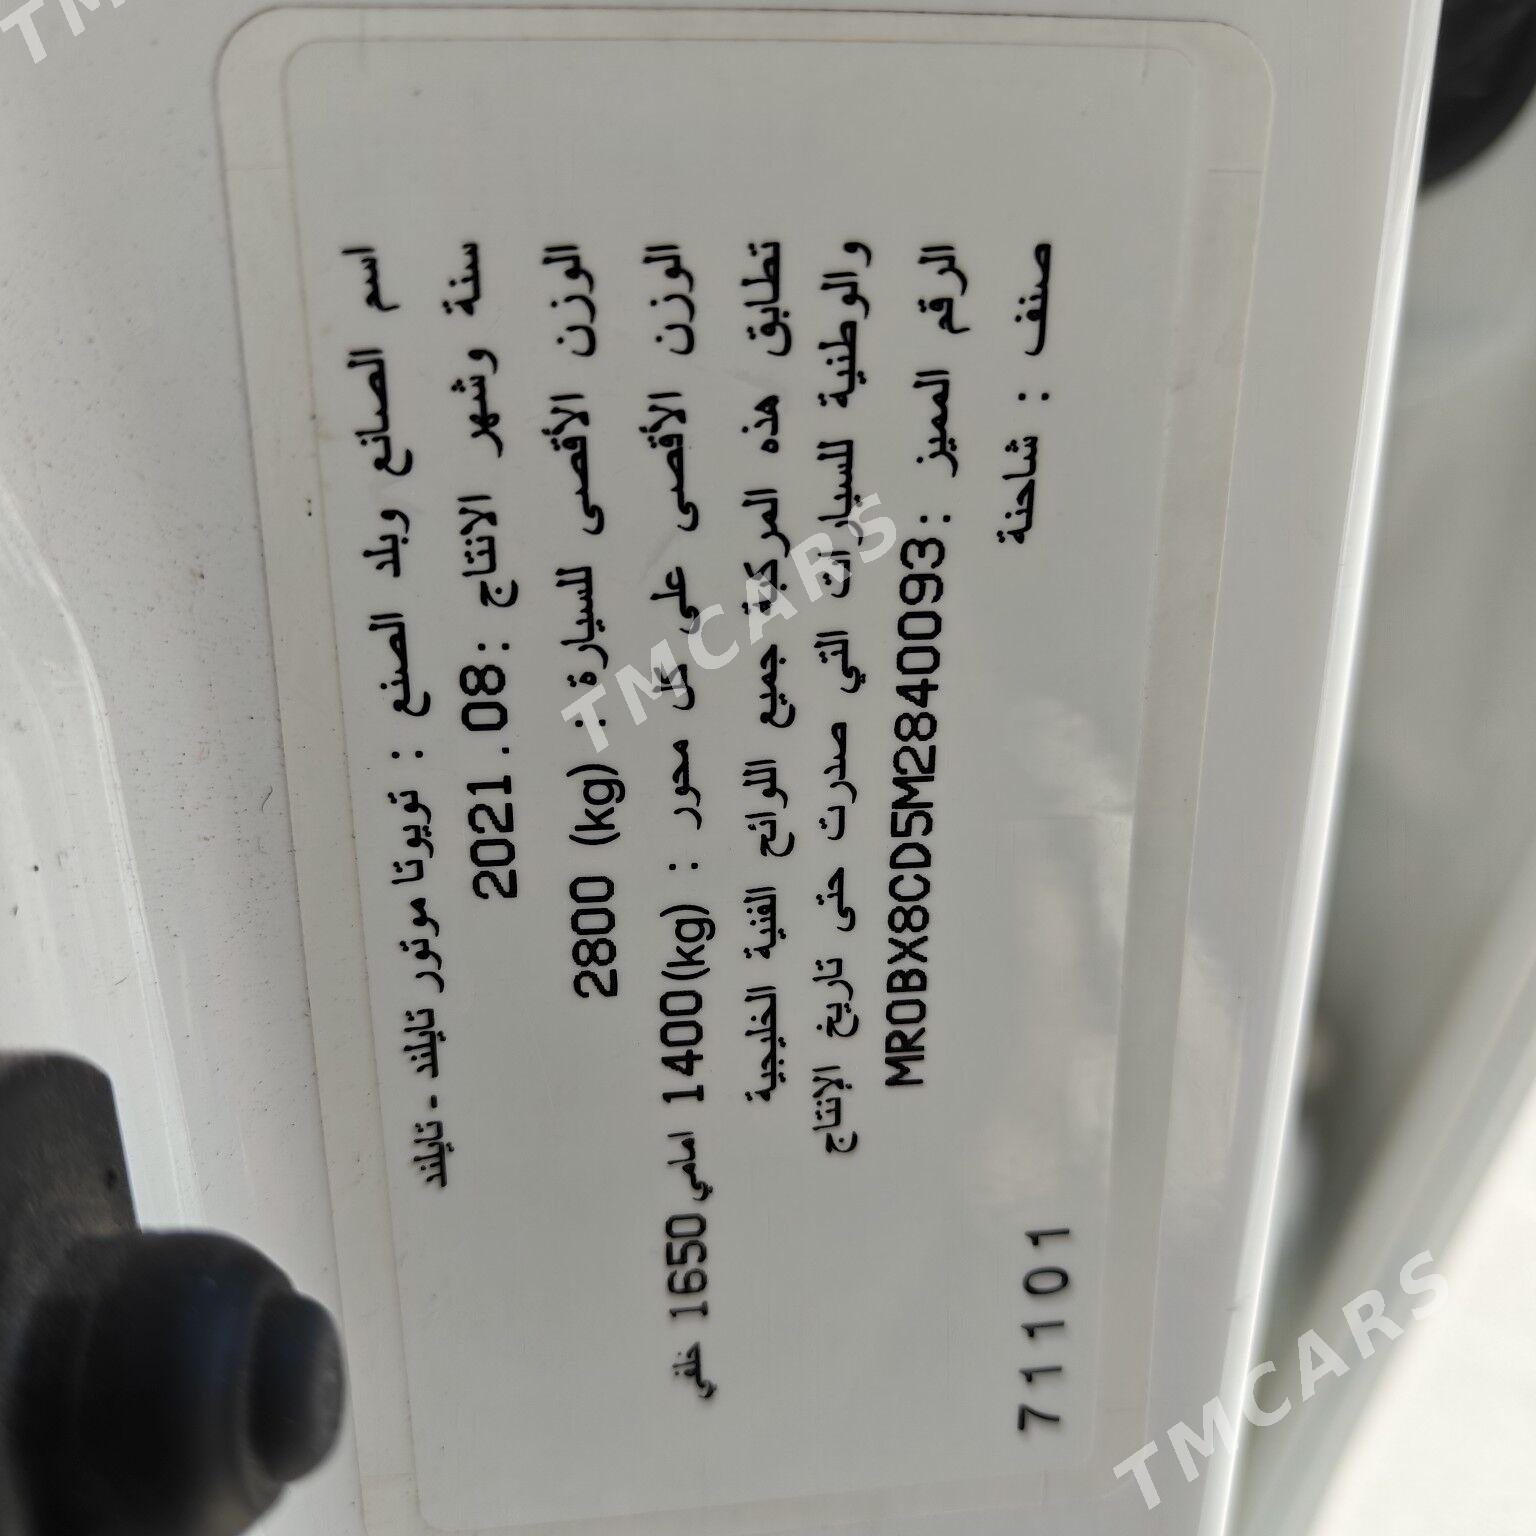 اسم الصانع وبلد الصنع : تويوتا موتور تايلند - تايلند
سنة وشهر الانتاج : 2021.08
الوزن الأقصى للسيارة : (kg) 2800
الوزن الأقصى على كل محور : (kg) 1400 امامي 1650 خلفي
تطابق هذه المركبة جميع اللوائح الفنية الخليجية
والوطنية للسيارات التي صدرت حتى تاريخ الإنتاج
الرقم المميز : MR0BX8CD5M2840093
صنف : شاحنة
71101
TMCARS
TMCARS
TM